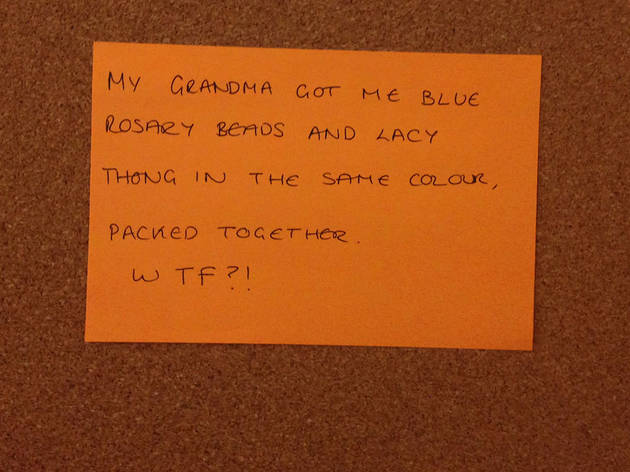 MY GRANDMA GOT ME BLUE
ROSARY BEADS AND LACY
THONG IN THE SAME COLOUR,
PACKED TOGETHER.
WTF?!